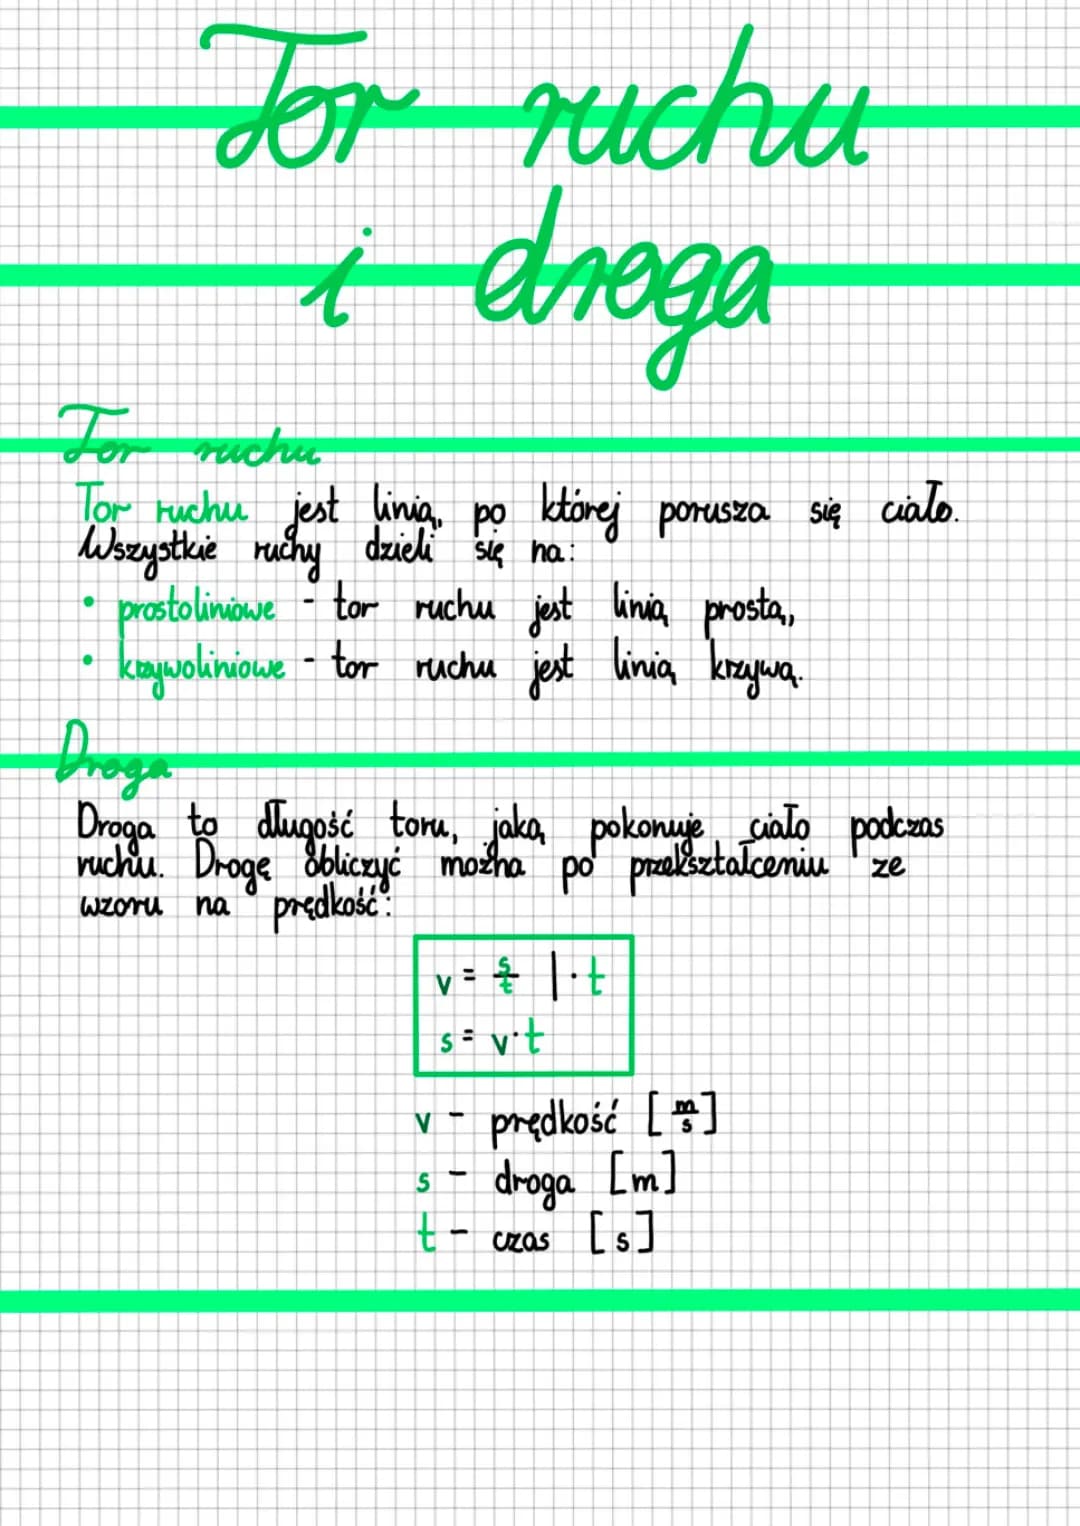 Tor ruchu
i droga
Tor ruchu
Tor ruchu jest linią, po której porusza się ciało.
Wszystkie ruchy dzieli się na:
• prostoliniowe - tor ruchu jest linią prostą,
• krzywoliniowe - tor ruchu jest linią krzywą.
Droga
Droga to długość toru, jaką pokonuje ciało podczas
ruchu. Drogę obliczyć można po przekształceniu ze
wzoru na prędkość:
v = s/t | · t
s = v · t
v - prędkość [m/s]
s - droga [m]
t - czas [s]